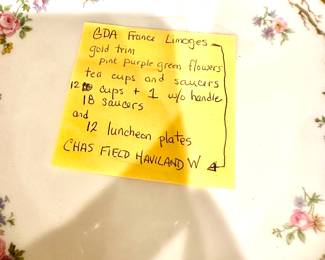 GDA France Limoges
gold trim
pink purple green flowers
tea cups and saucers
12 cups + 1 w/o handle
18 saucers
and
12 luncheon plates
CHAS FIELD HAVILAND W